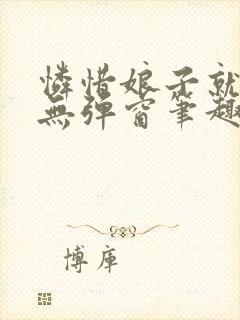 憐惜娘子就
無彈窗筆趣
博庫